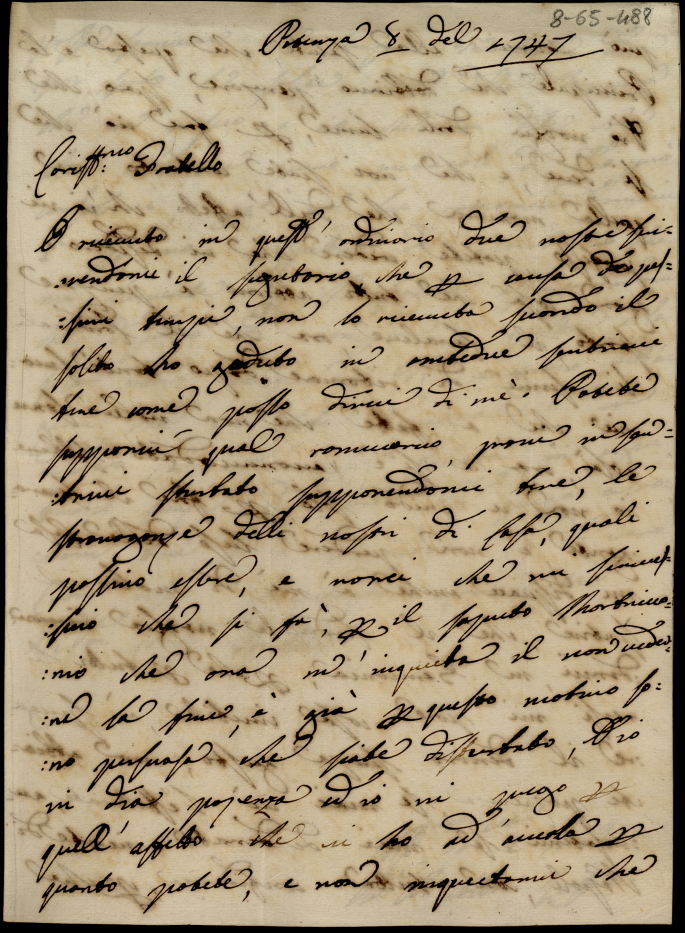 8-65-488
Potenza 8 del 1747
Cariss:mo Fratello
O ricevuto in quest' ordinario due vostre scri=
:vendomi il segretario che p causa de pes=
:simi tempi, non lo riceveva secondo il
solito ho goduto in ambedue sentirvi
bene come posso dirvi di mè. Potete
supponervi qual ramarico, provi in sen=
:tirvi sturbato supponendomi bene, le
stravaganze delli nostri di Casa, quali
possino essere, e vorrei che mi scrives=
:sivo che si fà, p il saputo Matrimo=
:nio che ora m' inquieta il non veder=
:ne la fine, è già p questo motivo so=
:no persuasa che siate disturbato, Dio
vi dia pazenza ed io vi prego p
quell' affetto che vi ho ad' averla p
quanto potete, e non inquietarvi che